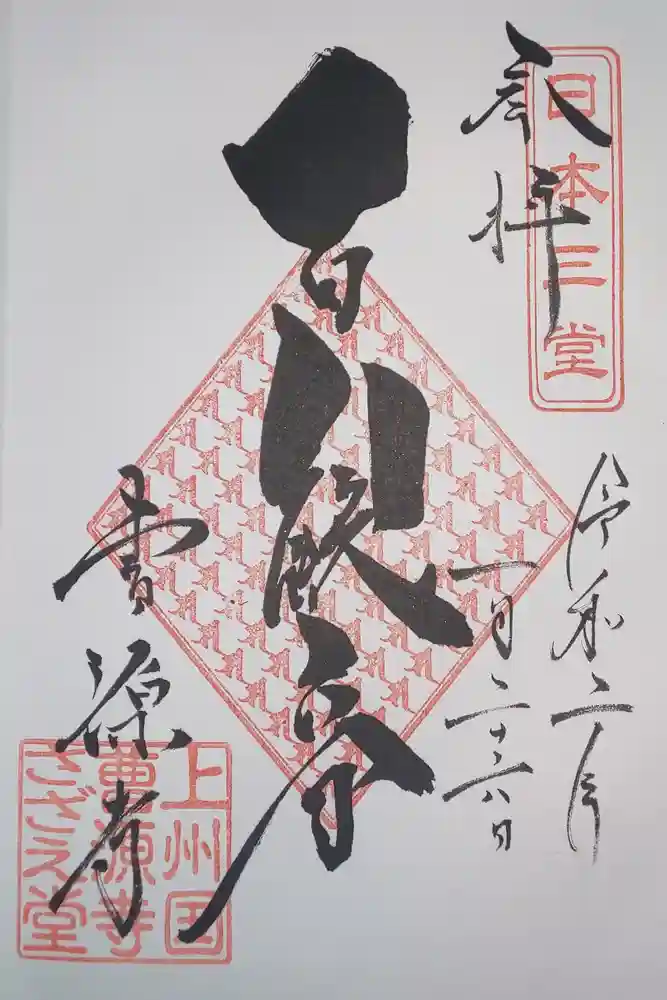 奉拝
日本三堂
令和二年
一月二十六日
百八観音
曹源寺
上州国
曹源寺
さざえ堂